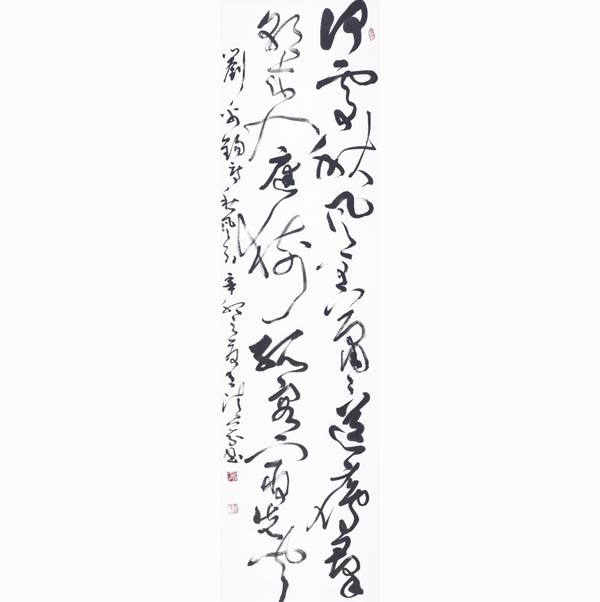 何處秋風至蕭〻送雁群
朝來入庭樹孤客最先聞
劉禹錫詩秋風引辛卯之夏書